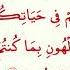 مْ فِي حَيَاتِكُ
لْهُونِ بِمَا كُنتُ